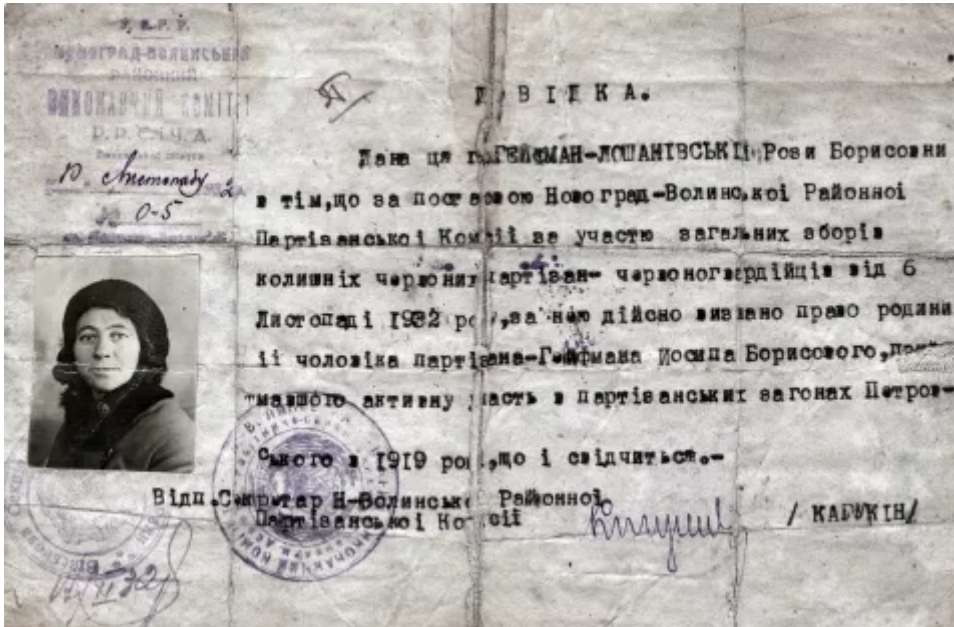 У. С. Р. Р.
НОВОГРАД-ВОЛИНСЬКИЙ
РАЙОННИЙ
ВИКОНАВЧИЙ КОМІТЕТ
Р. Р. С. та Ч. Д.
10. Листопаду 1932
№ 0-5
ДОВІДКА.
Дана ця гр. ГЕЙФМАН-ЛОШАНІВСЬКІЙ Рози Борисовни
в тім, що за постановою Новоград-Волинської Районної
Партізанської Комісії за участю загальних зборів
колишніх червоних партізан- червоногвардійців від 6
Листопаді 1932 року, за нею дійсно визнано право родини
її чоловіка партізана-Гейфмана Йосипа Борисового,
мавшого активну участь в партізанських загонах Петров-
ського в 1919 році, що і свідчиться.-
Відп. Секретар Н-Волинської Районної
Партізанської Комісії
/ КАРУКІН/